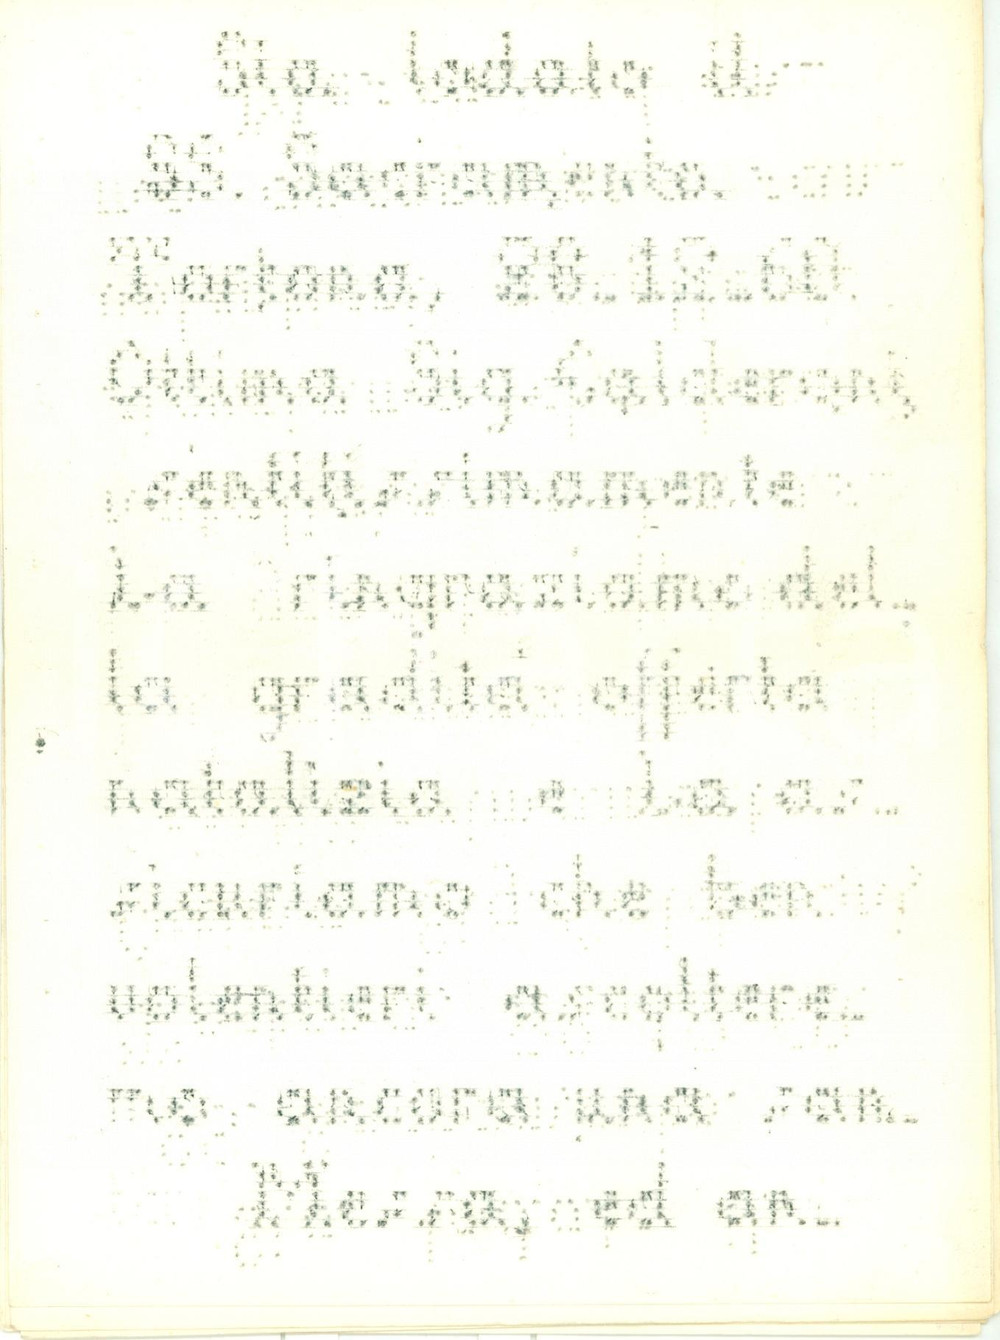 Sia lodato il
SS. Sacramento.
Tortona, 28.12.60.
Ottima Sig. Calderoni,
sentitissimamente
La ringraziamo del-
la gradita offerta
natalizia e La as-
sicuriamo che ben
volentieri ascoltere-
mo ancora una san.
Messa, ed an-